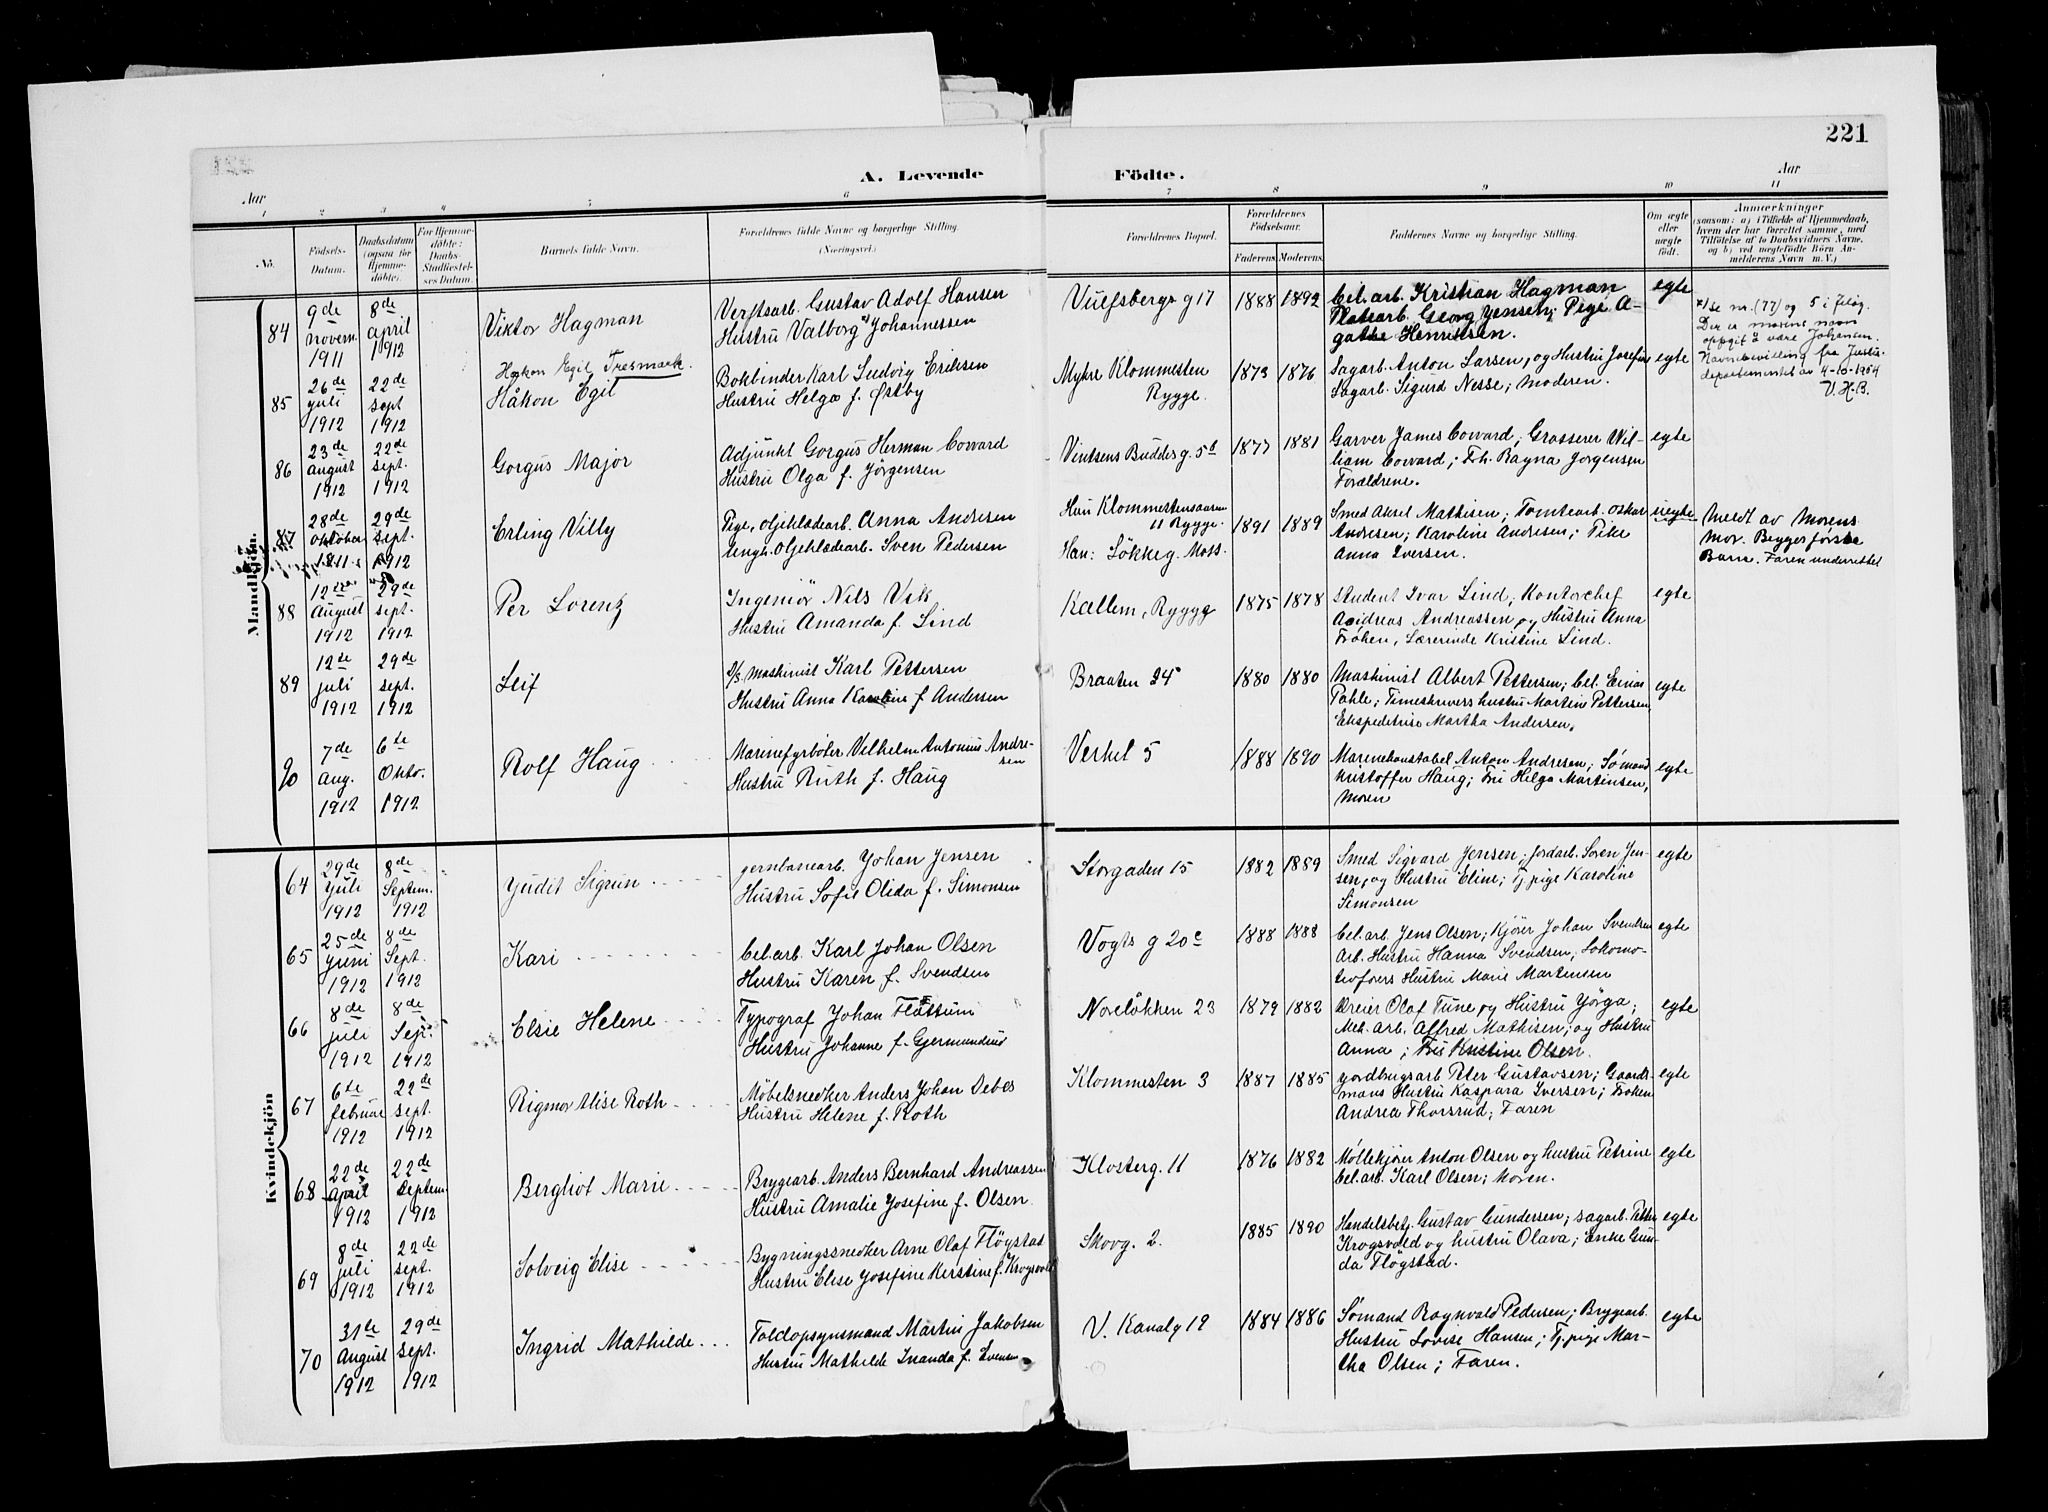 221
A. Levende Födte.
Aar
Aar
1 2 3 4 5 6 7 8 9 10 11
No.
Födsels-
Datum.
Daabsdatum
(ogsaa for
Hjemme-
döbte).
For Hjemme-
döbte:
Daabs-
Stadfæstel-
ses Datum.
Barnets fulde Navn.
Forældrenes fulde Navne og borgerlige Stilling.
(Næringsvei.)
Forældrenes Bopæl.
Forældrenes
Födselsaar.
Faderens.
Moderens.
Faddernes Navne og borgerlige Stilling.
Om ægte
eller
uægte
født.
Anmærkninger
(saasom: a) i Tilfælde af Hjemmedaab,
hvem der har forrettet samme, med
Tilföielse af to Daabsvidners Navne,
og b) ved uægtefödte Börn An-
melderens Navn m. V.)
Mandkjön.
84
9de
novem.
1911
8de
april
1912
Viktor Hagman
Verftsarb. Gustav Adolf Hansen
Hustru Valborg x) Johannessen
Vulfsbergs g 17
1888
1892
Cel. arb. Kristian Hagman
Platearb. Georg Jensen; Pige A-
gathe Henriksen.
egte
x) Se nr. (77) og 5 i fliög.
Der er morens navn
oppgit å være Johansen.
Navnebevilling fra Justis-
departementet av 4-10-1954
V.H.B.
Håkon Egil Tresmark.
85
26de
juli
1912
22de
sept
1912
Håkon Egil
Bokbinder Karl Ludvig Eriksen
Hustru Helga f. Østby
Mykre Klommesten
Rygge.
1873
1876
Sagarb. Anton Larsen, og Hustru Josefine
Sagarb. Sigurd Nesse; Moderen.
egte
86
23de
august
1912
22de
sept.
1912
Gorgus Major
Adjunkt Gorgus Herman Coward
Hustru Olga f. Jørgensen
Vintsens Buddes g. 5b
1877
1881
Garver James Coward; Grosserer Wil-
liam Coward; Frk. Ragna Jorgensen
Forældrene.
egte
87
28de
oktober
1911
29de
sept.
1912
Erling Villy
Pige, oljeklædearb. Anna Andresen
Ungk. Oljeklædearb. Sven Pedersen
Hun Klommestensaaren
11 Rygge.
Han: Løkkeg. Moss.
1891
1889
Smed Aksel Mathisen; Tomtearb. Oskar
Andresen; Karoline Andresen; Pike
Anna Iversen.
uegte
Meldt av Morens
Mor. Begges første
Barn. Faren underrettet
88
12te
August
1912
29de
sept.
1912
Per Lorentz
Ingeniør Nils Vik
Hustru Amanda f. Lind
Kællem, Rygge
1875
1878
Student Ivar Lind, Kontorchef
Andreas Andreassen og Hustru Anna
Frøken, Lærerinde Kristine Lind.
egte
89
12te
juli
1912
29de
sept.
1912
Leif
D/S. maskinist Karl Pettersen
Hustru Anna Karoline f. Andersen
Braaten 24
1880
1880
Maskinist Albert Pettersen; Cel. Einar
Pahle; Timeskrivers hustru Martine Pettersen
Ekspeditrise Martha Andersen.
egte
90
7de
Aug.
1912
6te
Okto.
1912
Rolf Haug
Marinefyrbøter Vilhelm Antonius Andre-
sen
Hustru Ruth f. Haug
Verket 5
1888
1890
Marinekonstabel Anton Andresen; Sømand
Kristoffer Haug; Fru Helga Martinsen,
Moren
egte
Kvindekjön
64
29de
Juli
1912
8de
Septem.
1912
Judit Sigrun
Jernbanearb. Johan Jensen
Hustru Sofie Olida f. Simonsen
Storgaden 15
1882
1889
Smed Sigvard Jensen; Jordarb. Soren Jen-
sen, og Hustru Eline; Tj.pige Karoline
Simonsen
egte
65
25de
Juni
1912
8de
Sept.
1912
Kari
Cel. arb. Karl Johan Olsen
Hustru Karen f. Svendsen
Vogts g 20c
1888
1888
Cel. arb. Jens Olsen; Kjører Johan Svendsen
Arb. Hustru Hanna Svendsen; Lokomo-
tivførers Hustru Marie Martensen
egte
66
8de
juli
1912
8de
Sept.
1912
Elsie Helene
Typograf Johan Flattum
Hustru Johanne f. Gjermundius
Noreløkken 23
1879
1882
Dreier Olaf Tune og Hustru Jørga;
Mek. arb. Alfred Mathisen; og Hustru
Anna; Fru Kristine Olsen.
egte
67
6te
februar
1912
22de
sept.
1912
Rigmor Alise Roth
Møbelsnedker Anders Johan Debes
Hustru Helene f. Roth
Klommesten 3
1887
1885
Jordbrugsarb Peter Gustavsen; Gaards-
mans Hustru Kaspara Iversen; Frøken
Andrea Thorsrud; Faren
egte
68
22de
April
1912
22de
Septem.
1912
Bergliot Marie
Brygearb. Anders Bernhard Andreassen
Hustru Amalie Josefine f. Olsen
Klosterg. 11
1876
1882
Møllekjører Anton Olsen og hustru Petrine
Cel. arb. Karl Olsen; Moren.
egte
69
8de
juli
1912
22de
sept.
1912
Solveig Elise
Bygningssnedker Arne Olaf Fløgstad
Hustru Elise Josefine Kerstine f. Krogsvold
Skovg. 2.
1885
1890
Handelsbetj. Gustav Gundersen; Sagarb. Petter
Krogsvold og hustru Olava; Enke Gun-
da Fløgstad.
egte
70
31te
August
1912
29de
sept.
1912
Ingrid Mathilde
Toldopsynsmand Martin Jakobsen
Hustru Mathilde Inanda f. Svensen
V. Kanalg 19
1884
1886
Sømand Ragnvald Pedersen; Brygearb.
Hustru Lovise Hansen; Tj.pige Mar-
tha Olsen; Faren.
egte